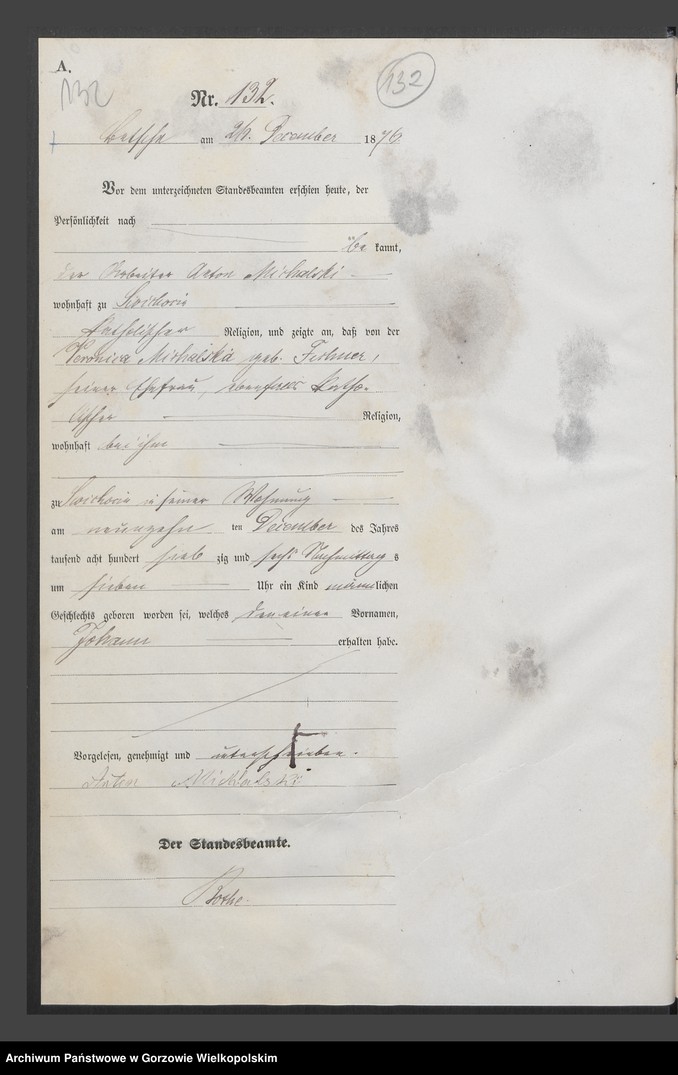 A.
132
132
Nr. 132.
Betsche am 21. December 1876.
Vor dem unterzeichneten Standesbeamten erschien heute, der
Persönlichkeit nach
be kannt,
der Arbeiter Anton Michalski
wohnhaft zu
katholischer Religion, und zeigte an, daß von der
Veronica Michalska geb.
seiner Ehefrau, ebenfalls katho-
lischer Religion,
wohnhaft bei ihm
zu in seiner Wohnung
am neunzehn ten December des Jahres
tausend acht hundert sieb zig und sechs Nachmittag s
um sieben Uhr ein Kind männlichen
Geschlechts geboren worden sei, welches den einen Vornamen,
Johann erhalten habe.
Vorgelesen, genehmigt und unterschrieben.
Anton Michalski
Der Standesbeamte.
Bothe.
Archiwum Państwowe w Gorzowie Wielkopolskim